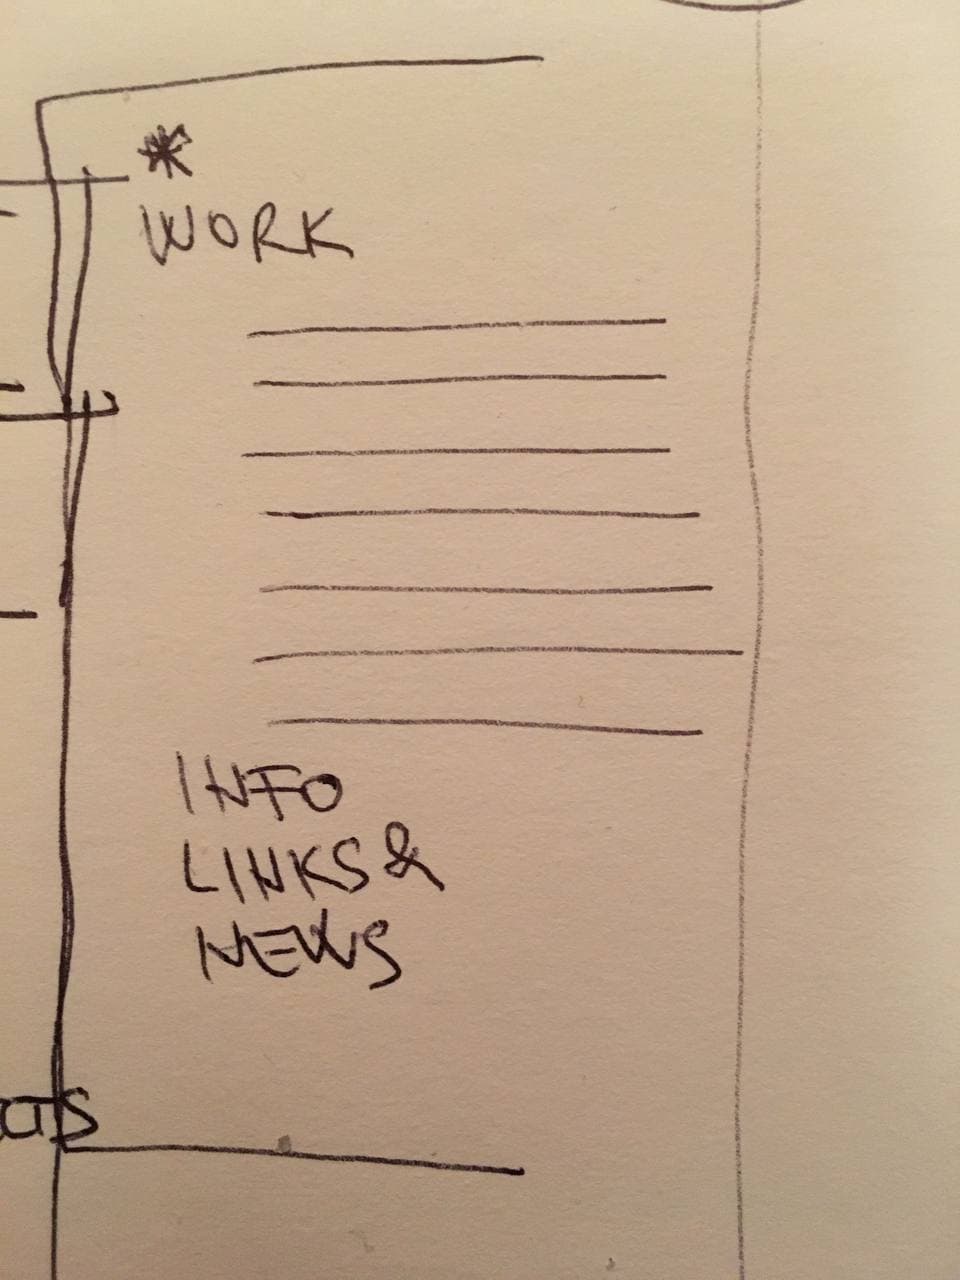 *
WORK
INFO
LINKS &
NEWS